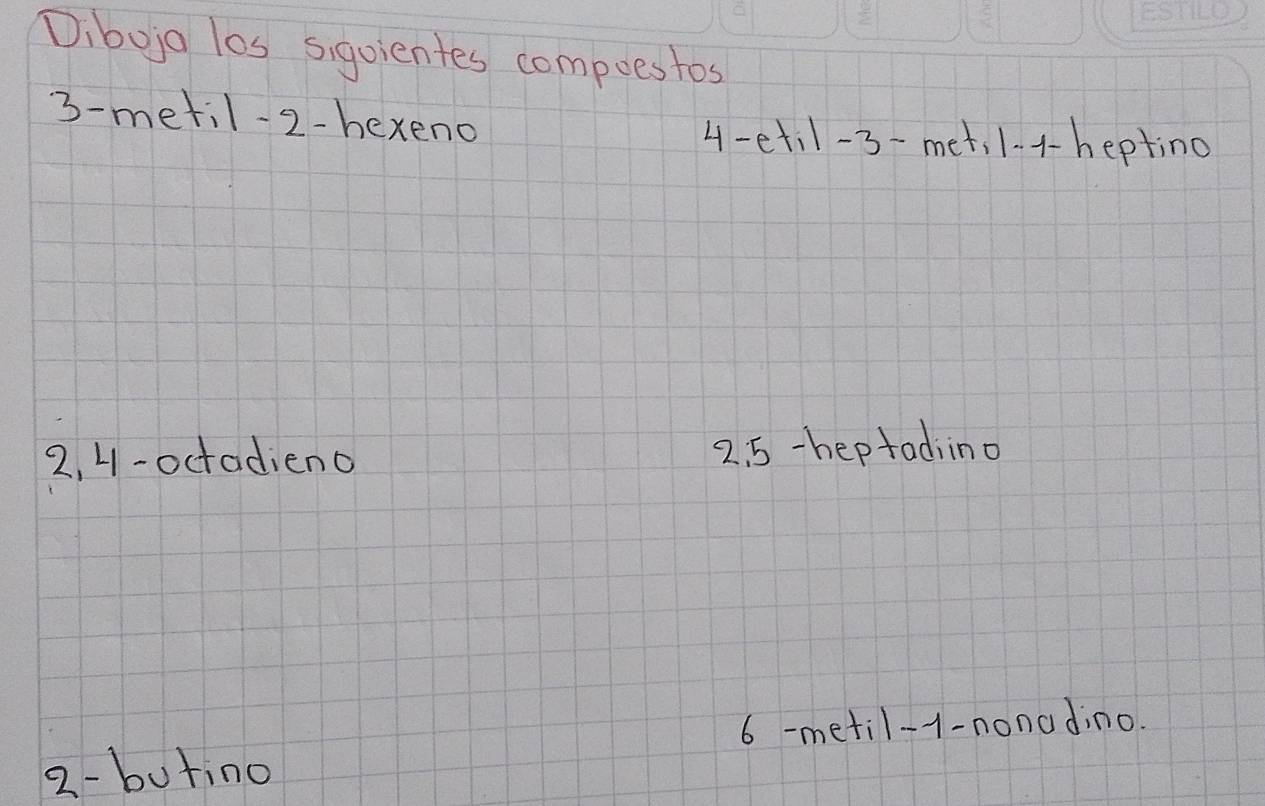 ESTILO
Dibuja los siguientes compuestos
3-metil-2-hexeno
4-etil-3-metil-1-heptino
2,4-octadieno
2,5-heptadiino
6-metil-1-nonadino.
2-butino